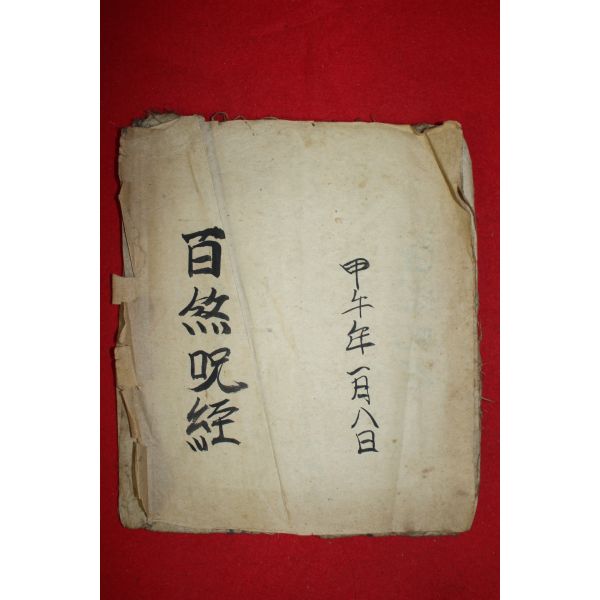 甲午年一月八日
百煞呪經